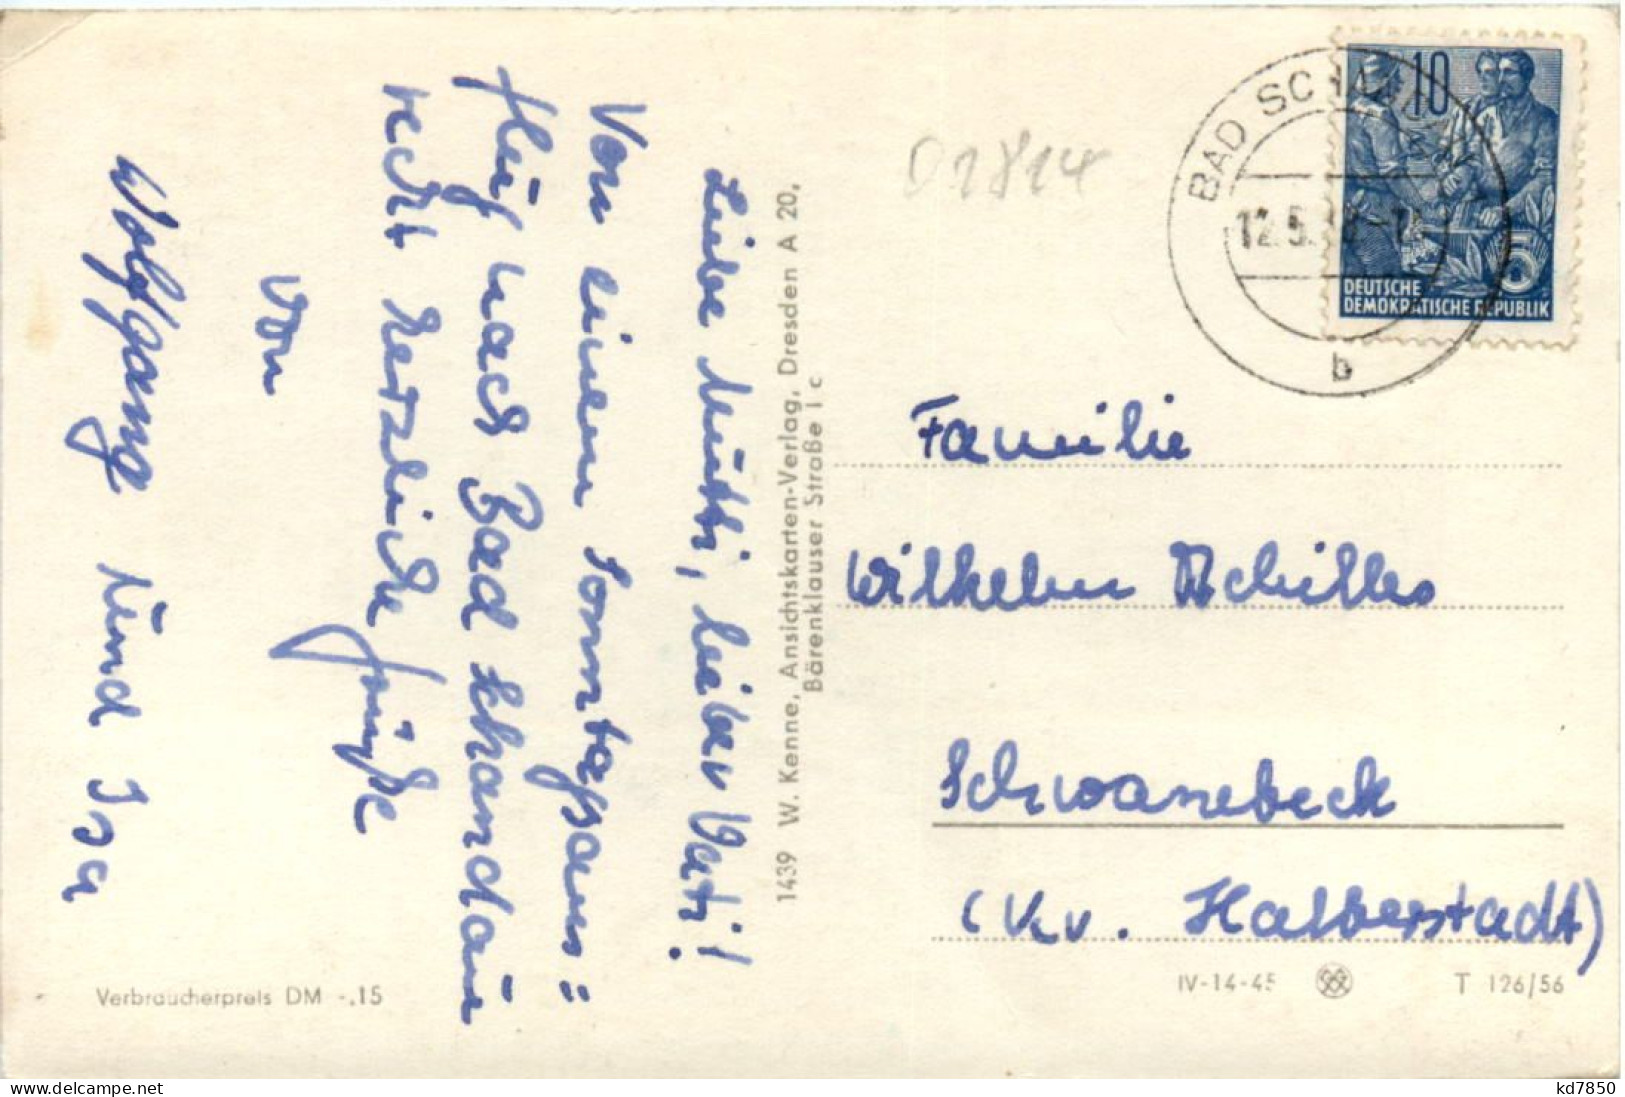 Liebe Mutti, lieber Vati!
Von einem Sonntagsaus=
flug nach Bad Schandau
recht herzliche Grüße
von
Wolfgang und Isa
Verbraucherpreis DM -,15
1439 W. Kenne, Ansichtskarten-Verlag, Dresden A 20,
Bärenklauser Straße 1 c
D1814
BAD SCHANDAU
12.5.
b
10
5
DEUTSCHE
DEMOKRATISCHE REPUBLIK
Familie
Wilhelm Achilles
Schwanebeck
(Kr. Halberstadt)
IV-14-45
T 126/56
kd7850